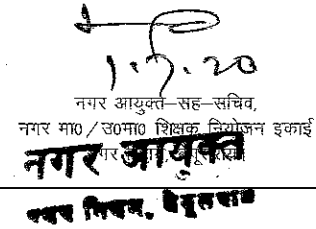 1.7.20
नगर आयुक्त–सह–सचिव,
नगर मा०/उ०मा० शिक्षक नियोजन इकाई
नगर आयुक्त
नगर निगम, बेगूसराय